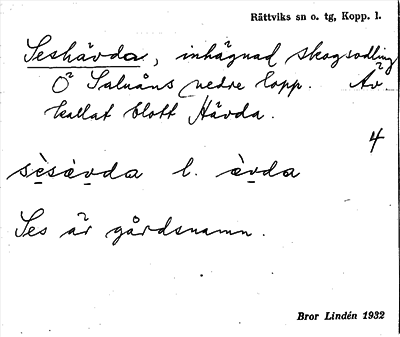 Rättviks sn o. tg, Kopp. l.
Seshävda, inhägnad skogsodling
Ö Saluåns nedre lopp. Äv.
kallat blott Hävda.
4
sèsàvda l. àvda
Ses är gårdsnamn.
Bror Lindén 1932